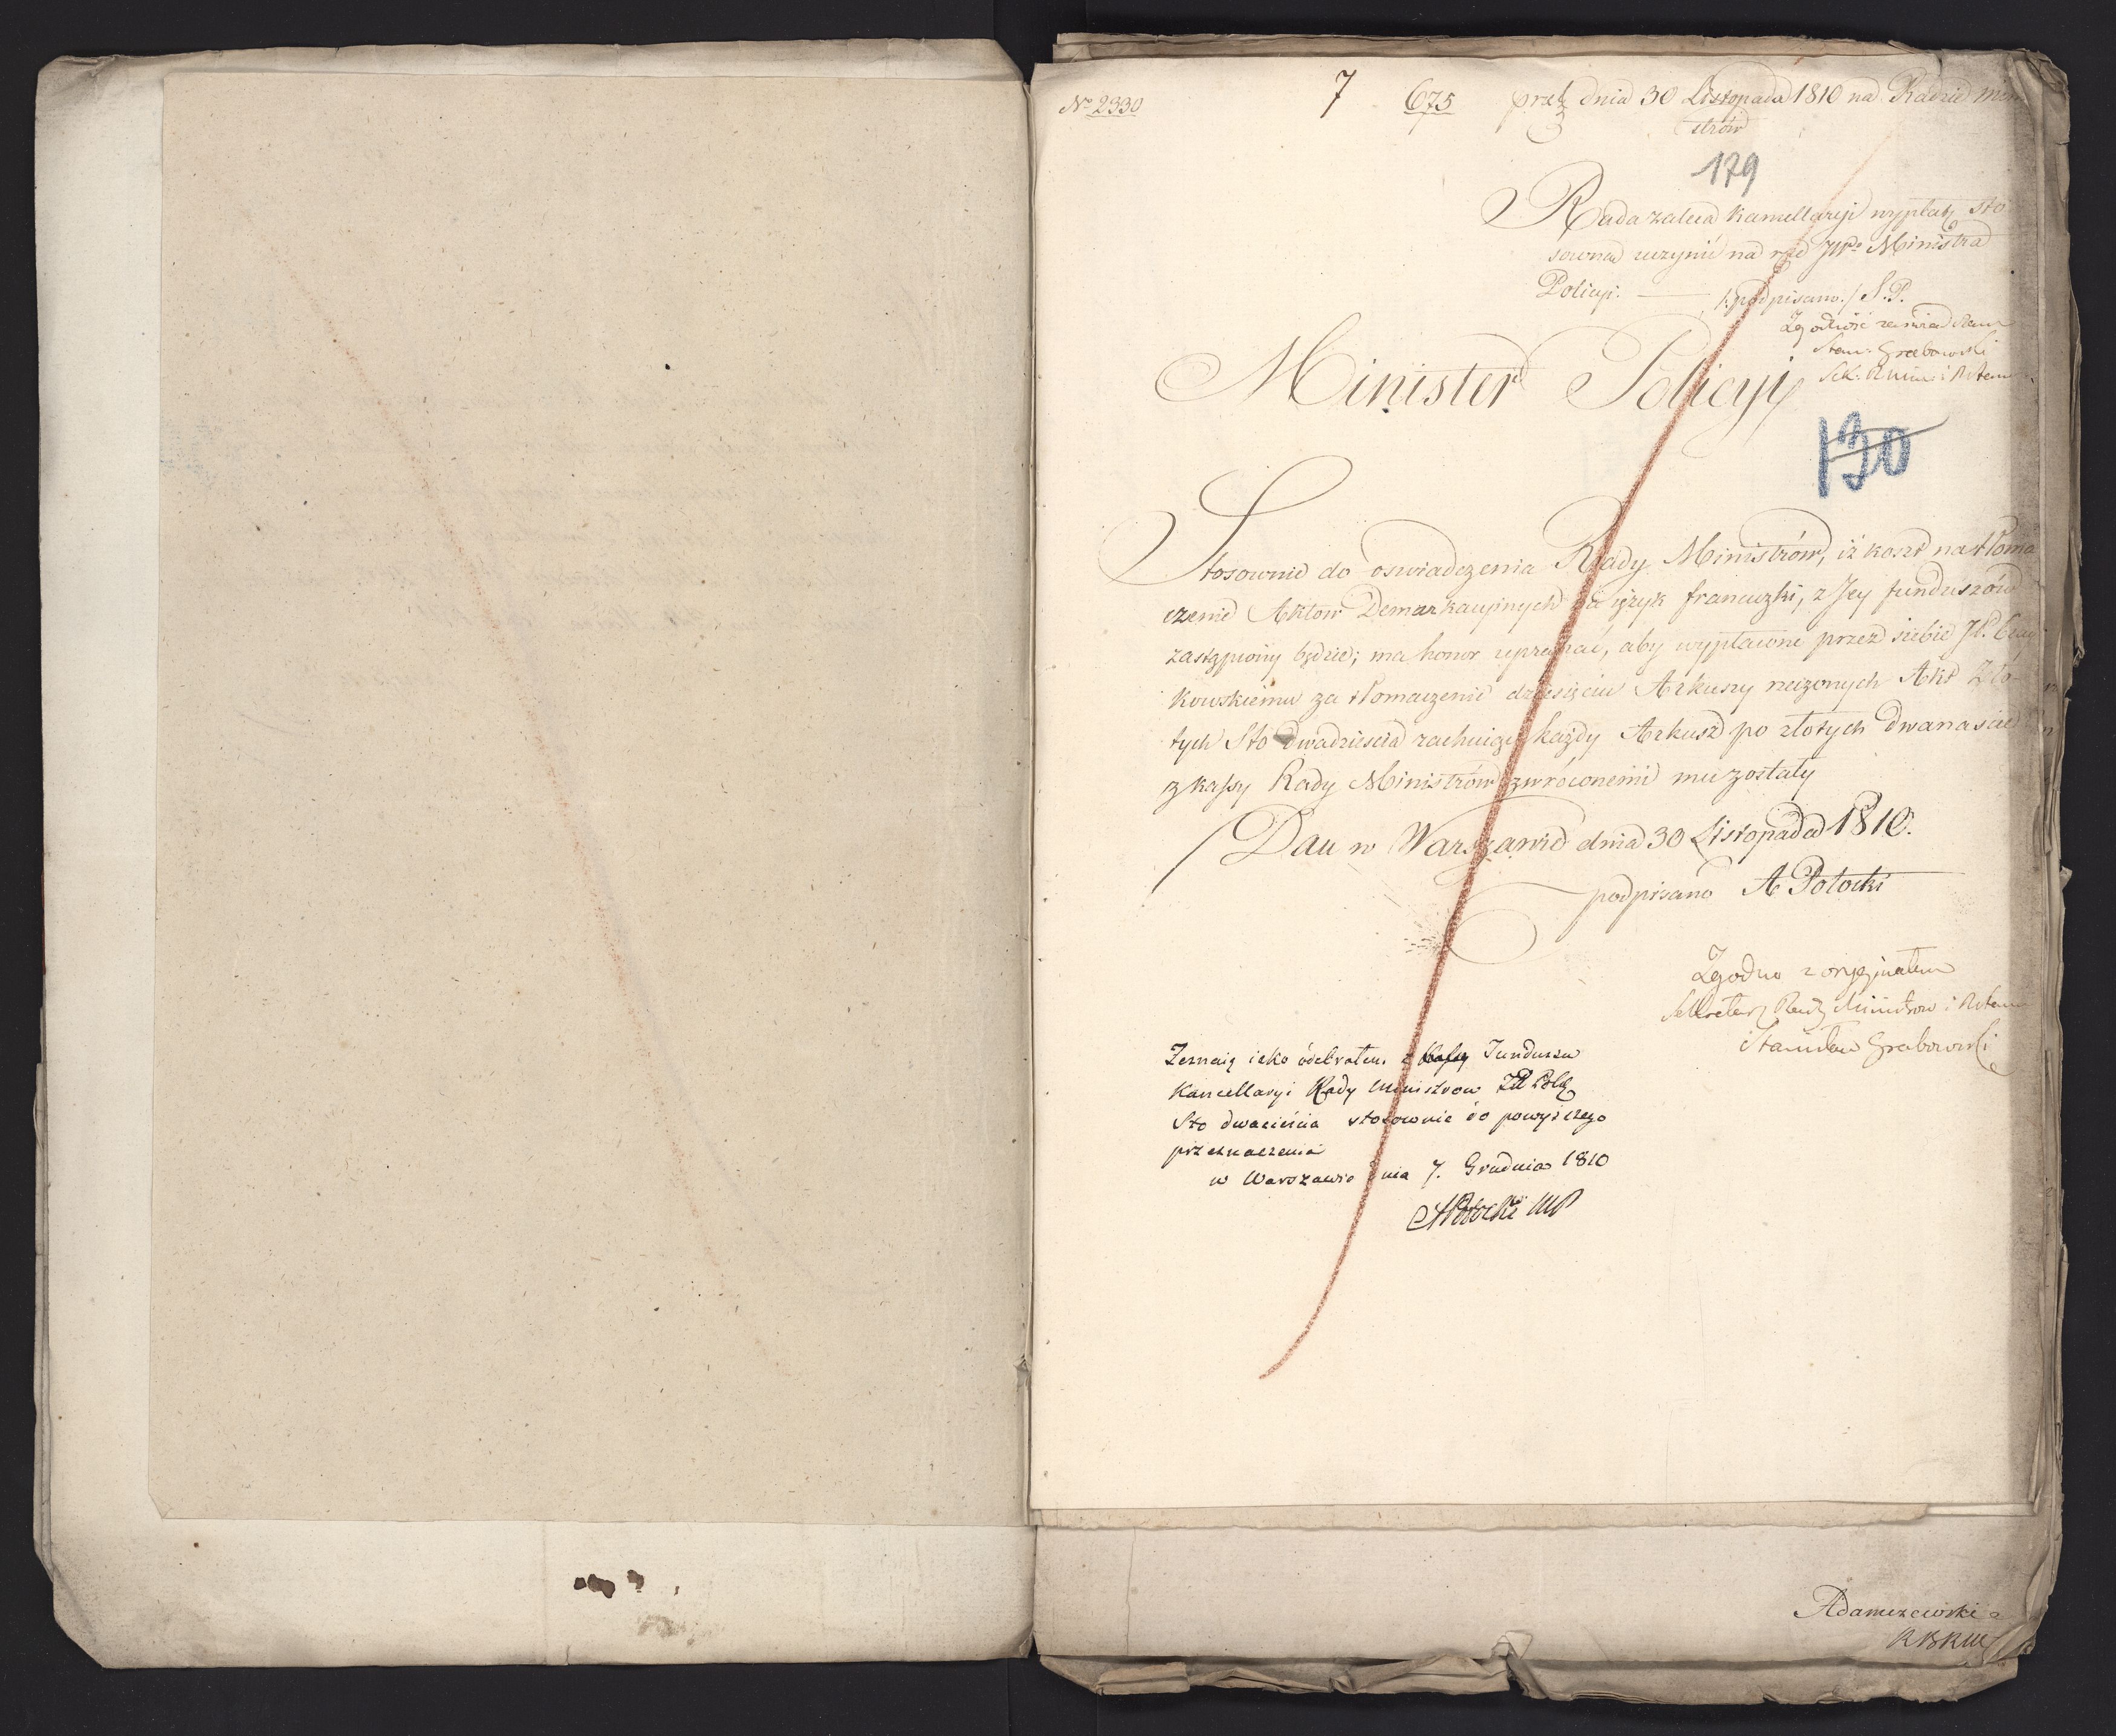 No 2330
7
675 prez: dnia 30 Listopada 1810 na Radzie Mini
strów
179
Rada zaleca Kancellaryi wypłatę sto
sowną uczynić na ręce JWo Ministra
Policyi. — /:podpisano:/ S.P.
Zgodność zaświadczam
Stan: Grabowski
Sek: R Min: i R Stanu
Minister Policyi
130
Stosownie do oswiadczenia Rady Ministrów, iż koszt na tłoma
czenie Aktow Demarkacyinych na ięzyk francuzki, z Jey funduszów
zastąpiony będzie; ma honor upraszać, aby wypłacone przez siebie JP.
kowskiemu za tłomaczenie dziesięciu Arkuszy rzeczonych Akt Zło-
tych Sto dwadzieścia rachuiąc każdy Arkusz po złotych dwanaście
z kassy Rady Ministrów zwróconemi mu zostały
Dan w Warszawie dnia 30 Listopada 1810.
podpisano A Potocki
Zgodno z oryginałem
Sekretarz Rady Ministrow i R Stanu
Stanisław Grabowski
Zeznaię iako odebrałem z Kassy Funduszu
Kancellaryi Rady Ministrow Zł Pol:
Sto dwacieścia stosownie do powyższego
przeznaczenia
w Warszawie dnia 7. Grudnia 1810
APotocki MP
Adamczewski